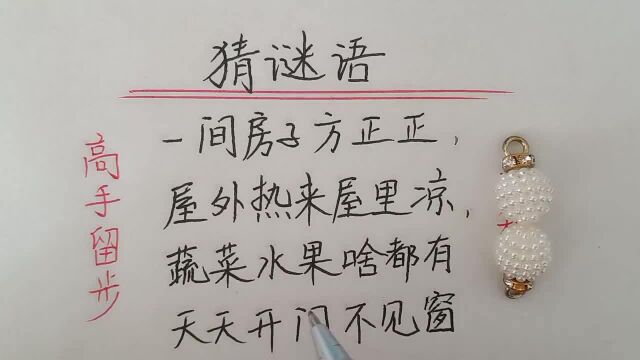 猜谜语
高手留步
一间房子方正正，
屋外热来屋里凉，
蔬菜水果啥都有
天天开门不见窗